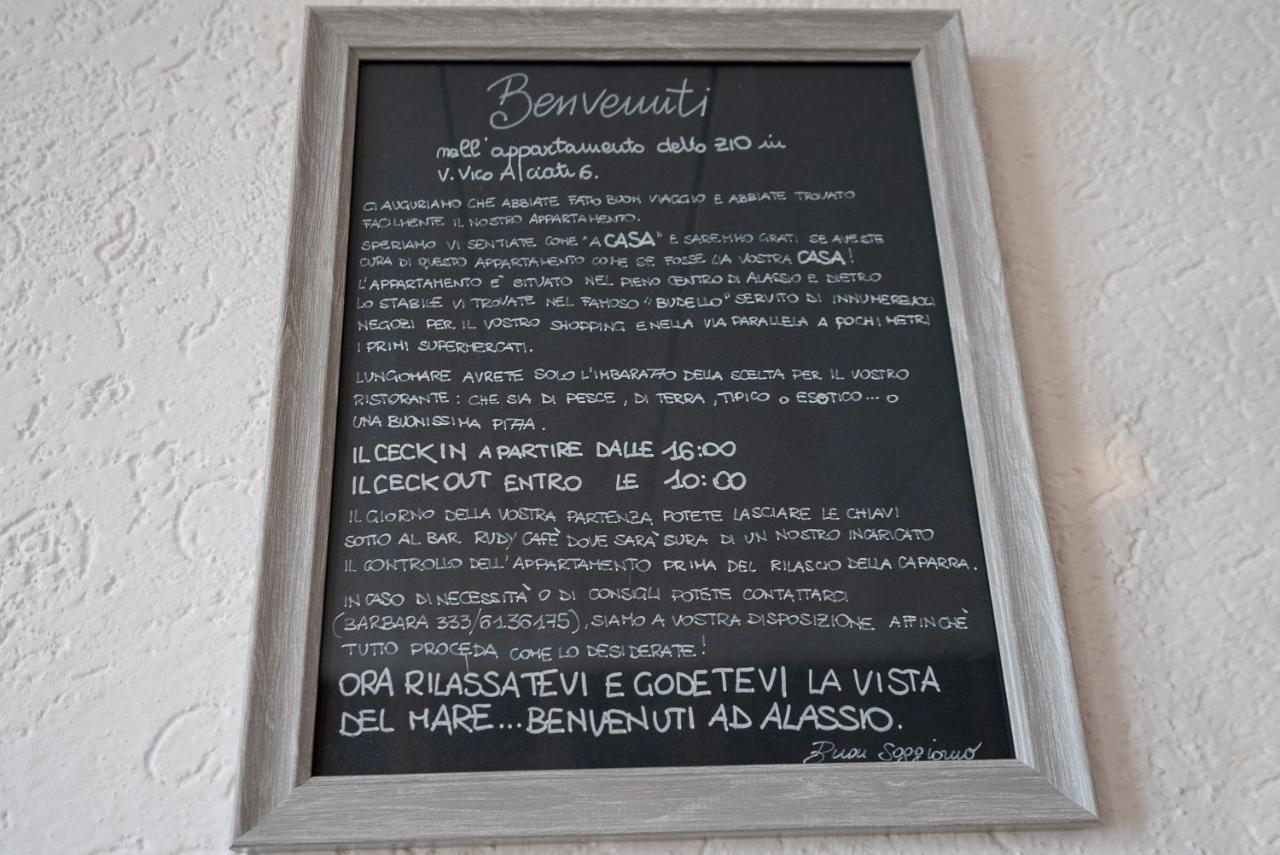 Benvenuti
nell'appartamento dello ZIO in
V. Vico Alciati 6.
CI AUGURIAMO CHE ABBIATE FATTO BUON VIAGGIO E ABBIATE TROVATO
FACILMENTE IL NOSTRO APPARTAMENTO.
SPERIAMO VI SENTIATE COME "A CASA" E SAREMMO GRATI SE AVESTE
CURA DI QUESTO APPARTAMENTO COME SE FOSSE LA VOSTRA CASA!
L'APPARTAMENTO E' SITUATO NEL PIENO CENTRO DI ALASSIO E DIETRO
LO STABILE VI TROVATE NEL FAMOSO "BUDELLO" SERVITO DI INNUMEREVOLI
NEGOZI PER IL VOSTRO SHOPPING E NELLA VIA PARALLELA A POCHI METRI
I PRIMI SUPERMERCATI.
LUNGOMARE AVRETE SOLO L'IMBARAZZO DELLA SCELTA PER IL VOSTRO
RISTORANTE: CHE SIA DI PESCE, DI TERRA, TIPICO o ESOTICO... o
UNA BUONISSIMA PIZZA.
IL CECK IN A PARTIRE DALLE 16:00
IL CECK OUT ENTRO LE 10:00
IL GIORNO DELLA VOSTRA PARTENZA POTETE LASCIARE LE CHIAVI
SOTTO AL BAR RUDY CAFÈ DOVE SARÀ SURA DI UN NOSTRO INCARICATO
IL CONTROLLO DELL'APPARTAMENTO PRIMA DEL RILASCIO DELLA CAPARRA.
IN CASO DI NECESSITÀ O DI CONSIGLI POTETE CONTATTARCI
(BARBARA 333/6136175), SIAMO A VOSTRA DISPOSIZIONE AFFINCHÈ
TUTTO PROCEDA COME LO DESIDERATE!
ORA RILASSATEVI E GODETEVI LA VISTA
DEL MARE...BENVENUTI AD ALASSIO.
Buon Soggiorno